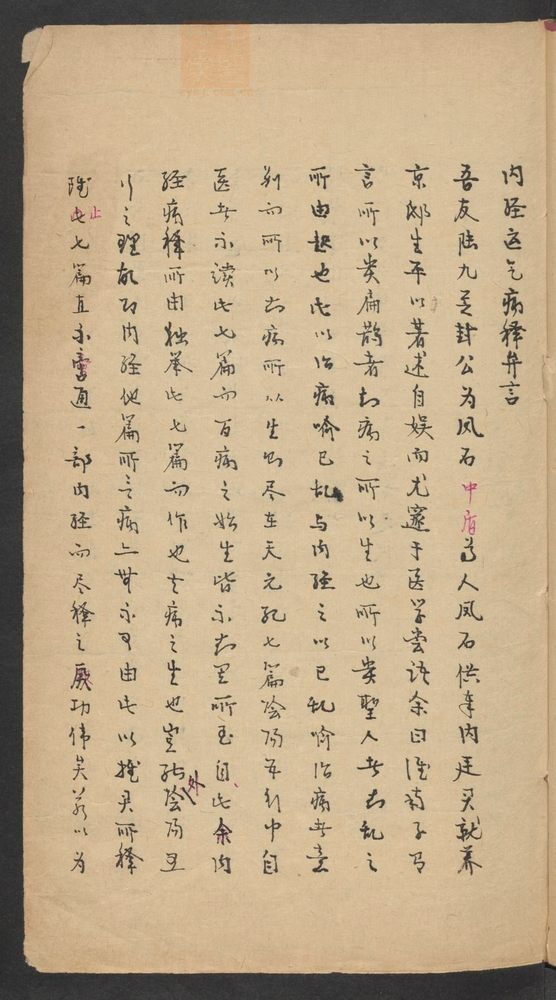 内经运气病释弁言
吾友陆九芝封公为凤石中允尊人凤石供奉内廷买就养
京邸生平以著述自娱而尤邃于医学尝语余曰淮南子曰
言所以贵扁鹊者知病之所以生也所以贵圣人者知乱之
所由起也此以治病喻已乱与内经之以已乱喻治病者意
别而所以知病所以生则尽在天元纪七篇阴阳五行中自
医者不读此七篇而百病之始生皆不知其所在自此余内
经病释所由独举此七篇而作也夫病之生也岂能外阴阳五
行之理故即内经他篇所言病亦无不可由此以推君所释
虽止七篇直不啻通一部内经而尽释之厥功伟矣若以为